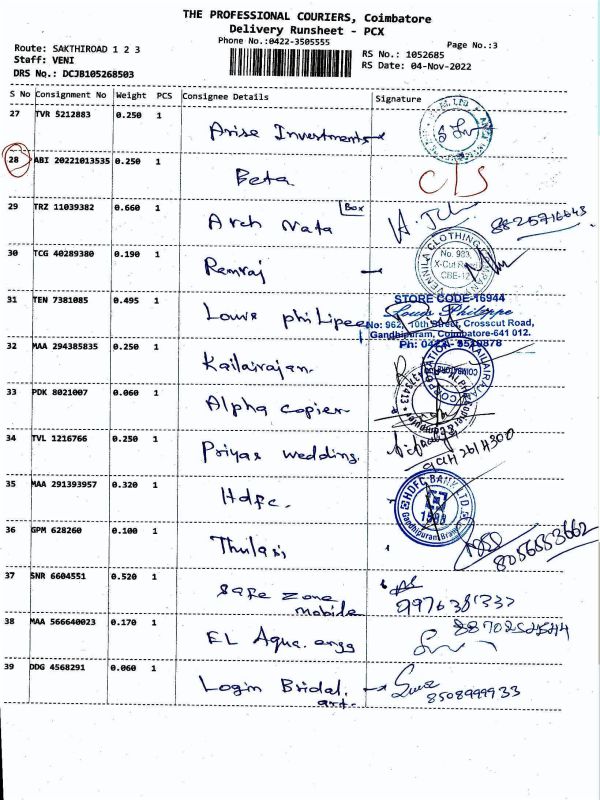 THE PROFESSIONAL COURIERS, Coimbatore
Delivery Runsheet - PCX
Phone No.:0422-3505555
Page No.:3
Route: SAKTHIROAD 1 2 3
Staff: VENI
DRS No.: DCJB105268503
RS No.: 1052685
RS Date: 04-Nov-2022
S No Consignment No Weight PCS Consignee Details Signature
27 TVR 5212883 0.250 1
Arise Investments
28 ABI 20221013535 0.250 1
Beta
CLS
29 TRZ 11039382 0.660 1
Box
Arch Nata
8825716643
30 TCG 40289380 0.190 1
Ramraj
VENNILA CLOTHING
No. 983,
X-Cut Road
CBE-12
31 TEN 7381085 0.495 1
Louve philipee
STORE CODE-16944
Louis Philippe
No: 962, 10th Street, Crosscut Road,
Gandhipuram, Coimbatore-641 012.
32 MAA 294385835 0.250 1
Kailairajan
33 PDK 8021007 0.060 1
Alpha copier
34 TVL 1216766 0.250 1
Priyas wedding.
35 MAA 291393957 0.320 1
Hdfc.
HDFC BANK LTD.
Gandhipuram Branch
36 GPM 628260 0.100 1
Thulasi
8056653662
37 SNR 6604551 0.520 1
safe zone
mobile
38 MAA 566640023 0.170 1
EL Aqua. engg
39 DDG 4568291 0.060 1
Login Bridal.
art.
8508999933